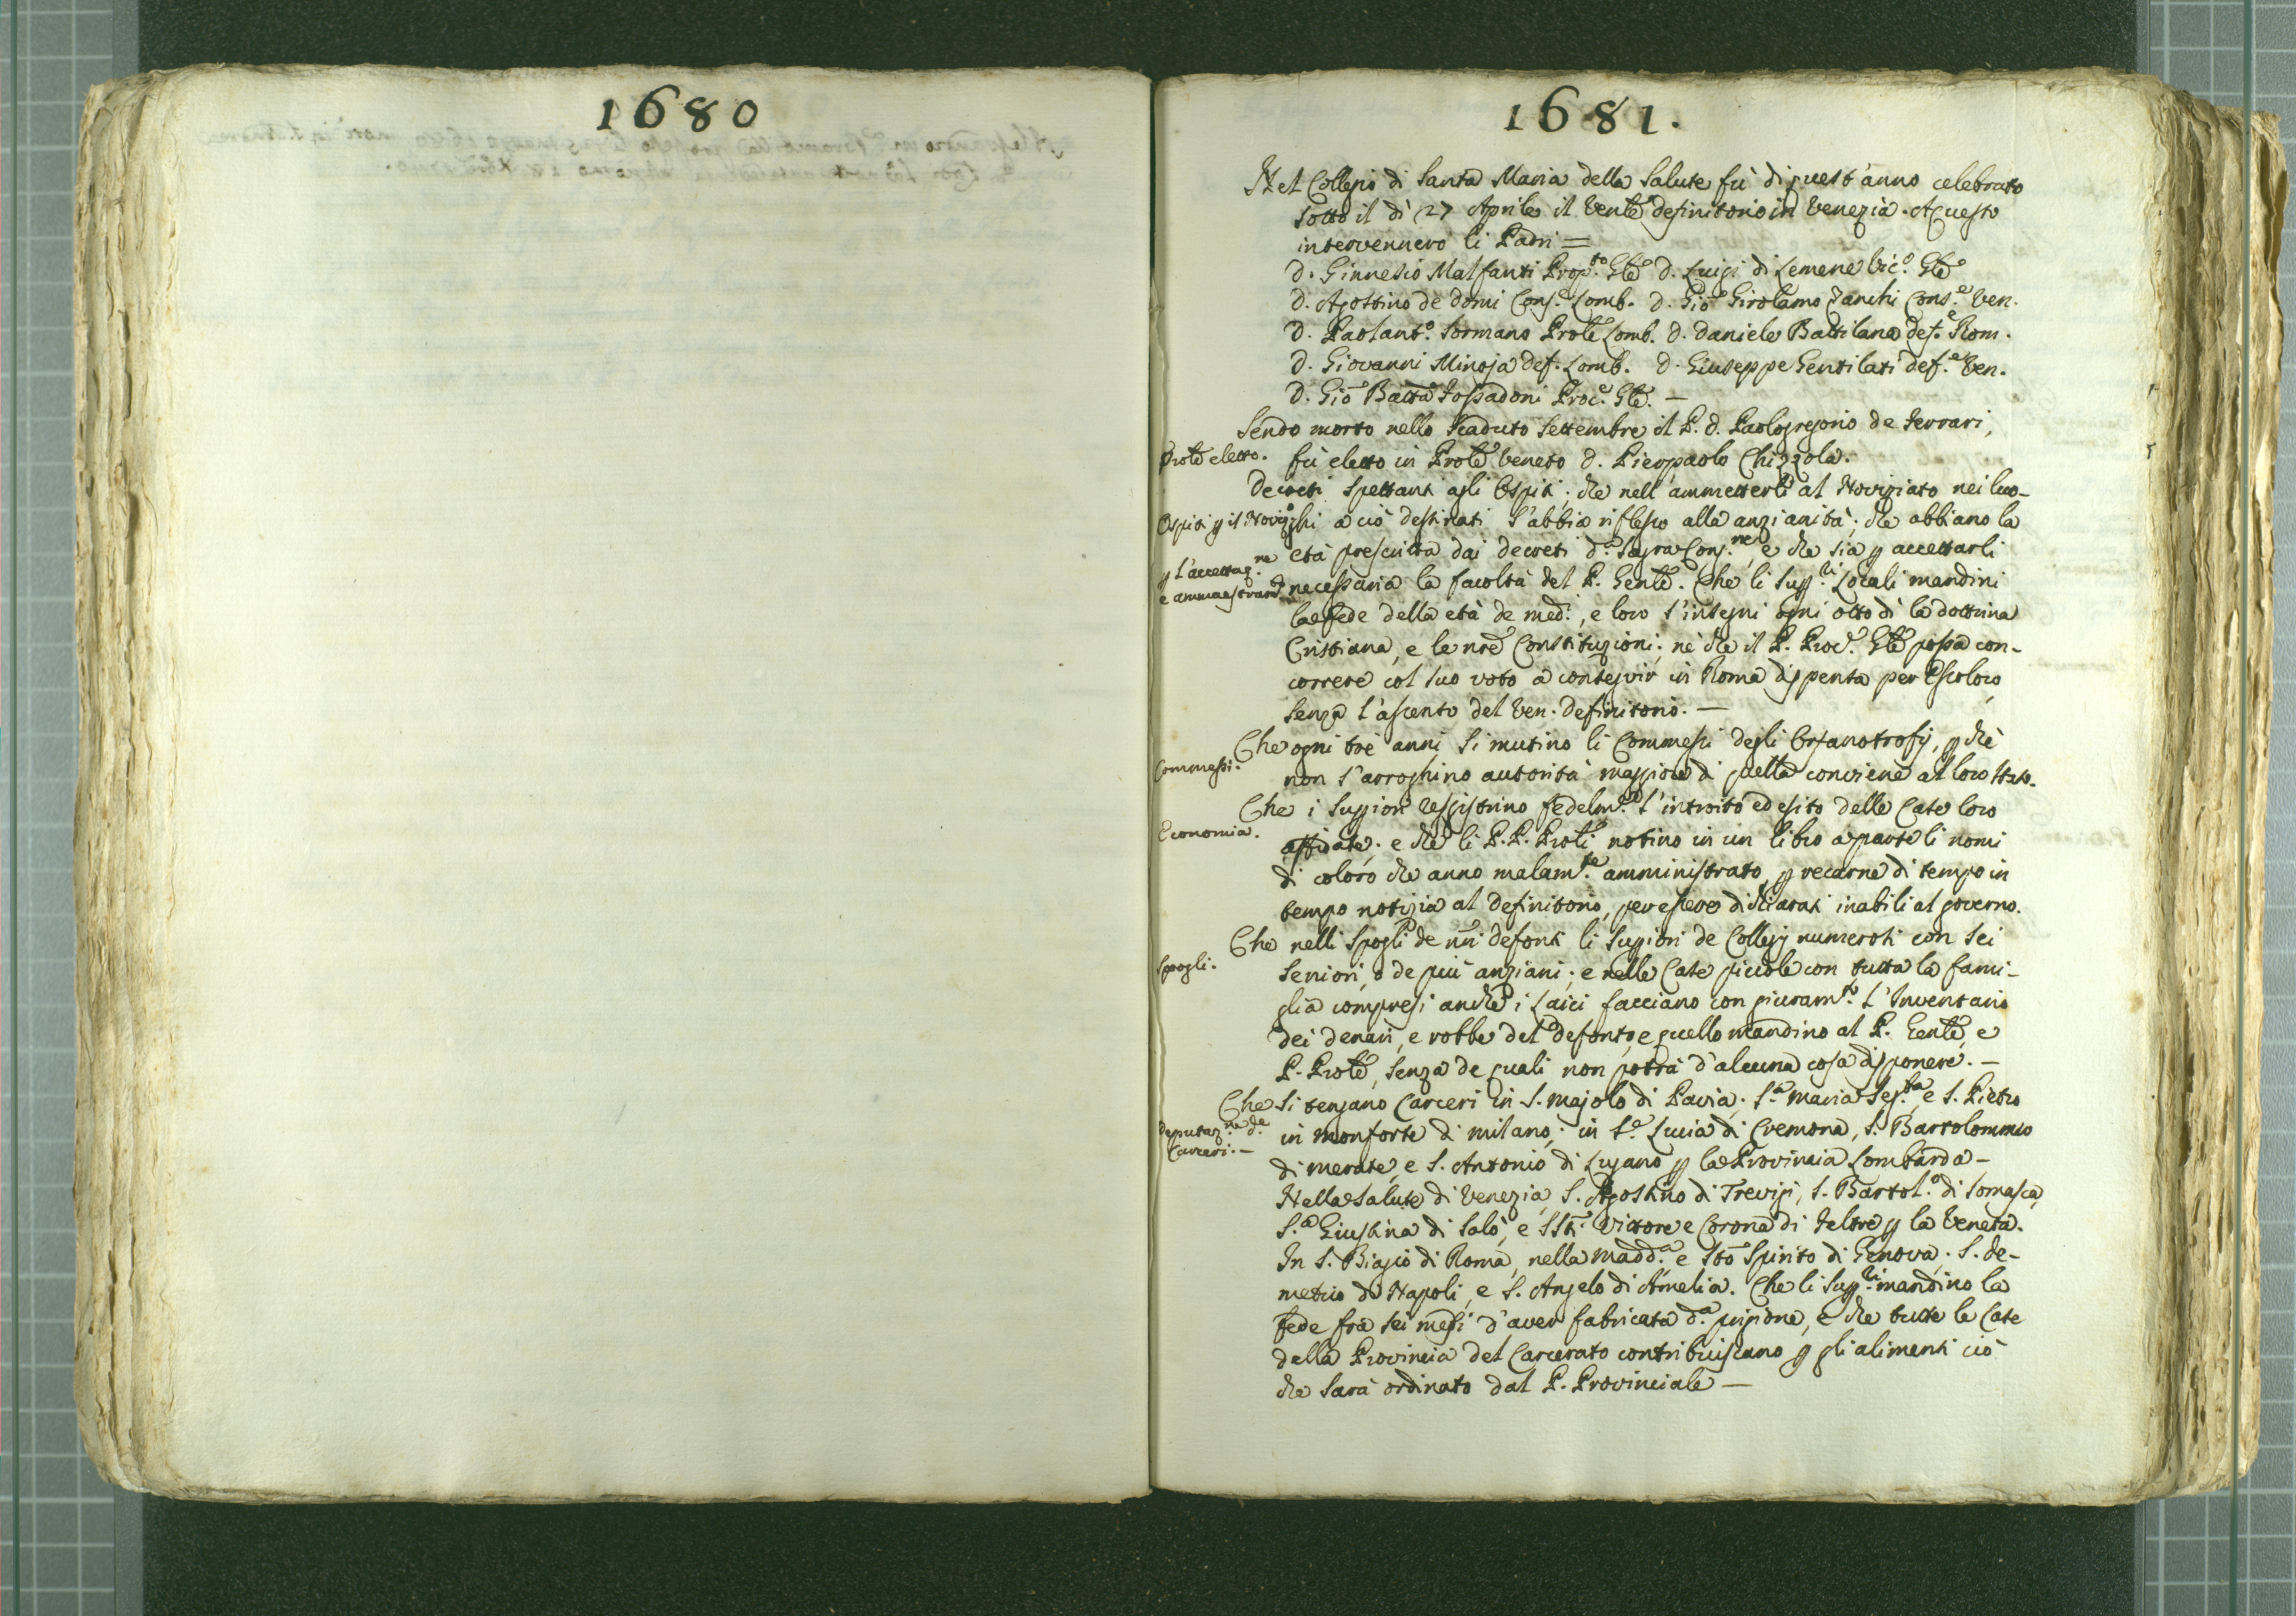 1680
1681.
Nel Collegio di Santa Maria della Salute fù di quest'anno celebrato
sotto il dì 27 Aprile il Ven.le definitorio in Venezia. A questo
intervennero li Padri =
D. Ginnesio Malfanti Prep.to Gle D. Luigi di Lemene Vic.o Gle
D. Agostino de Domi Cons.e Lomb. D. Gio Girolamo Zanchi Cons.e Ven.
D. Paolant.o Sormano Prole Lomb. D. Daniele Battilana def.e Rom.
D. Giovanni Minoja def. Lomb. D. Giuseppe Gentilati def.e Ven.
D. Gio Batta Fossadoni Proc.e Gle. —
Sendo morto nello scaduto Settembre il P. D. Paologregorio de Ferrari,
Prole eletto. fù eletto in Prole Veneto D. Pierpaolo Chizzola.
Decreti spettanti agli Ospiti; che nell'ammetterli al Noviziato nei luo-
Ospiti p il Noviz.o ghi a ciò destinati s'abbia riflesso alla anzianità; che abbiano la
p l'accettaz.ne età prescritta dai decreti d.a Sagra Cong.ne, e che sia p accettarli
e ammaestram.to necessaria la facoltà del P. Genle. Che li Supp.ri Locali mandini
la fede della età de med.i, e loro s'insegni ogni otto dì la dottrina
Cristiana, e le nre Constituzioni; nè che il P. Proc.e Gle possa con-
correre col suo voto a conseguir in Roma dispensa per Escoloro
senza l'ascenso del Ven. definitorio. —
Che ogni trè anni si mutino li Commessi degli Orfanotrofj, p chè
Commessi. non s'arroghino autorità maggiore di quella conviene al loro stato.
Che i Suppiori reggistrino fedelm.te l'introito ed esito delle Case loro
Economia. affidate; e che li P.P. Proli notino in un libro a parte li nomi
di coloro che anno malam.te amministrato, p recarne di tempo in
tempo notizia al definitorio, per essere dichiarati inabili al governo.
Che nelli spogli de nri defonti li Suppiori de Collegj numerosi con sei
Spogli. seniori, o de più anziani; e nelle Case piccole con tutta la fami-
glia compresi anche i Laici facciano con giuram.to l'Inventario
dei denari, e robbe del defonto, e quello mandino al P. Genle, e
P. Prole, senza de quali non potrà d'alcuna cosa disponere. —
Che si tengano Carceri in S. Majolo di Pavia; S.a Maria Seg.ta, e S. Pietro
deputaz.ne de in Monforte di Milano; in S.a Lucia di Cremona, S. Bartolommeo
Carceri. — di Merate, e S. Antonio di Lugano p la Provincia Lombarda —
Nella Salute di Venezia, S. Agostino di Trevigi, S. Bartol.o di Somasca,
S.a Giustina di Salò, e SSti Vittore e Corona di Feltre p la Veneta.
In S. Biagio di Roma, nella Madd.a e Sto Spirito di Genova; S. De-
metrio di Napoli, e S. Angelo di Amelia. Che li Supp.ri mandino la
fede fra sei mesi d'aver fabricata d.a prigione, e che tutte le Case
della Provincia del Carcerato contribuiscano p gli alimenti ciò
che sarà ordinato dal P. Provinciale —